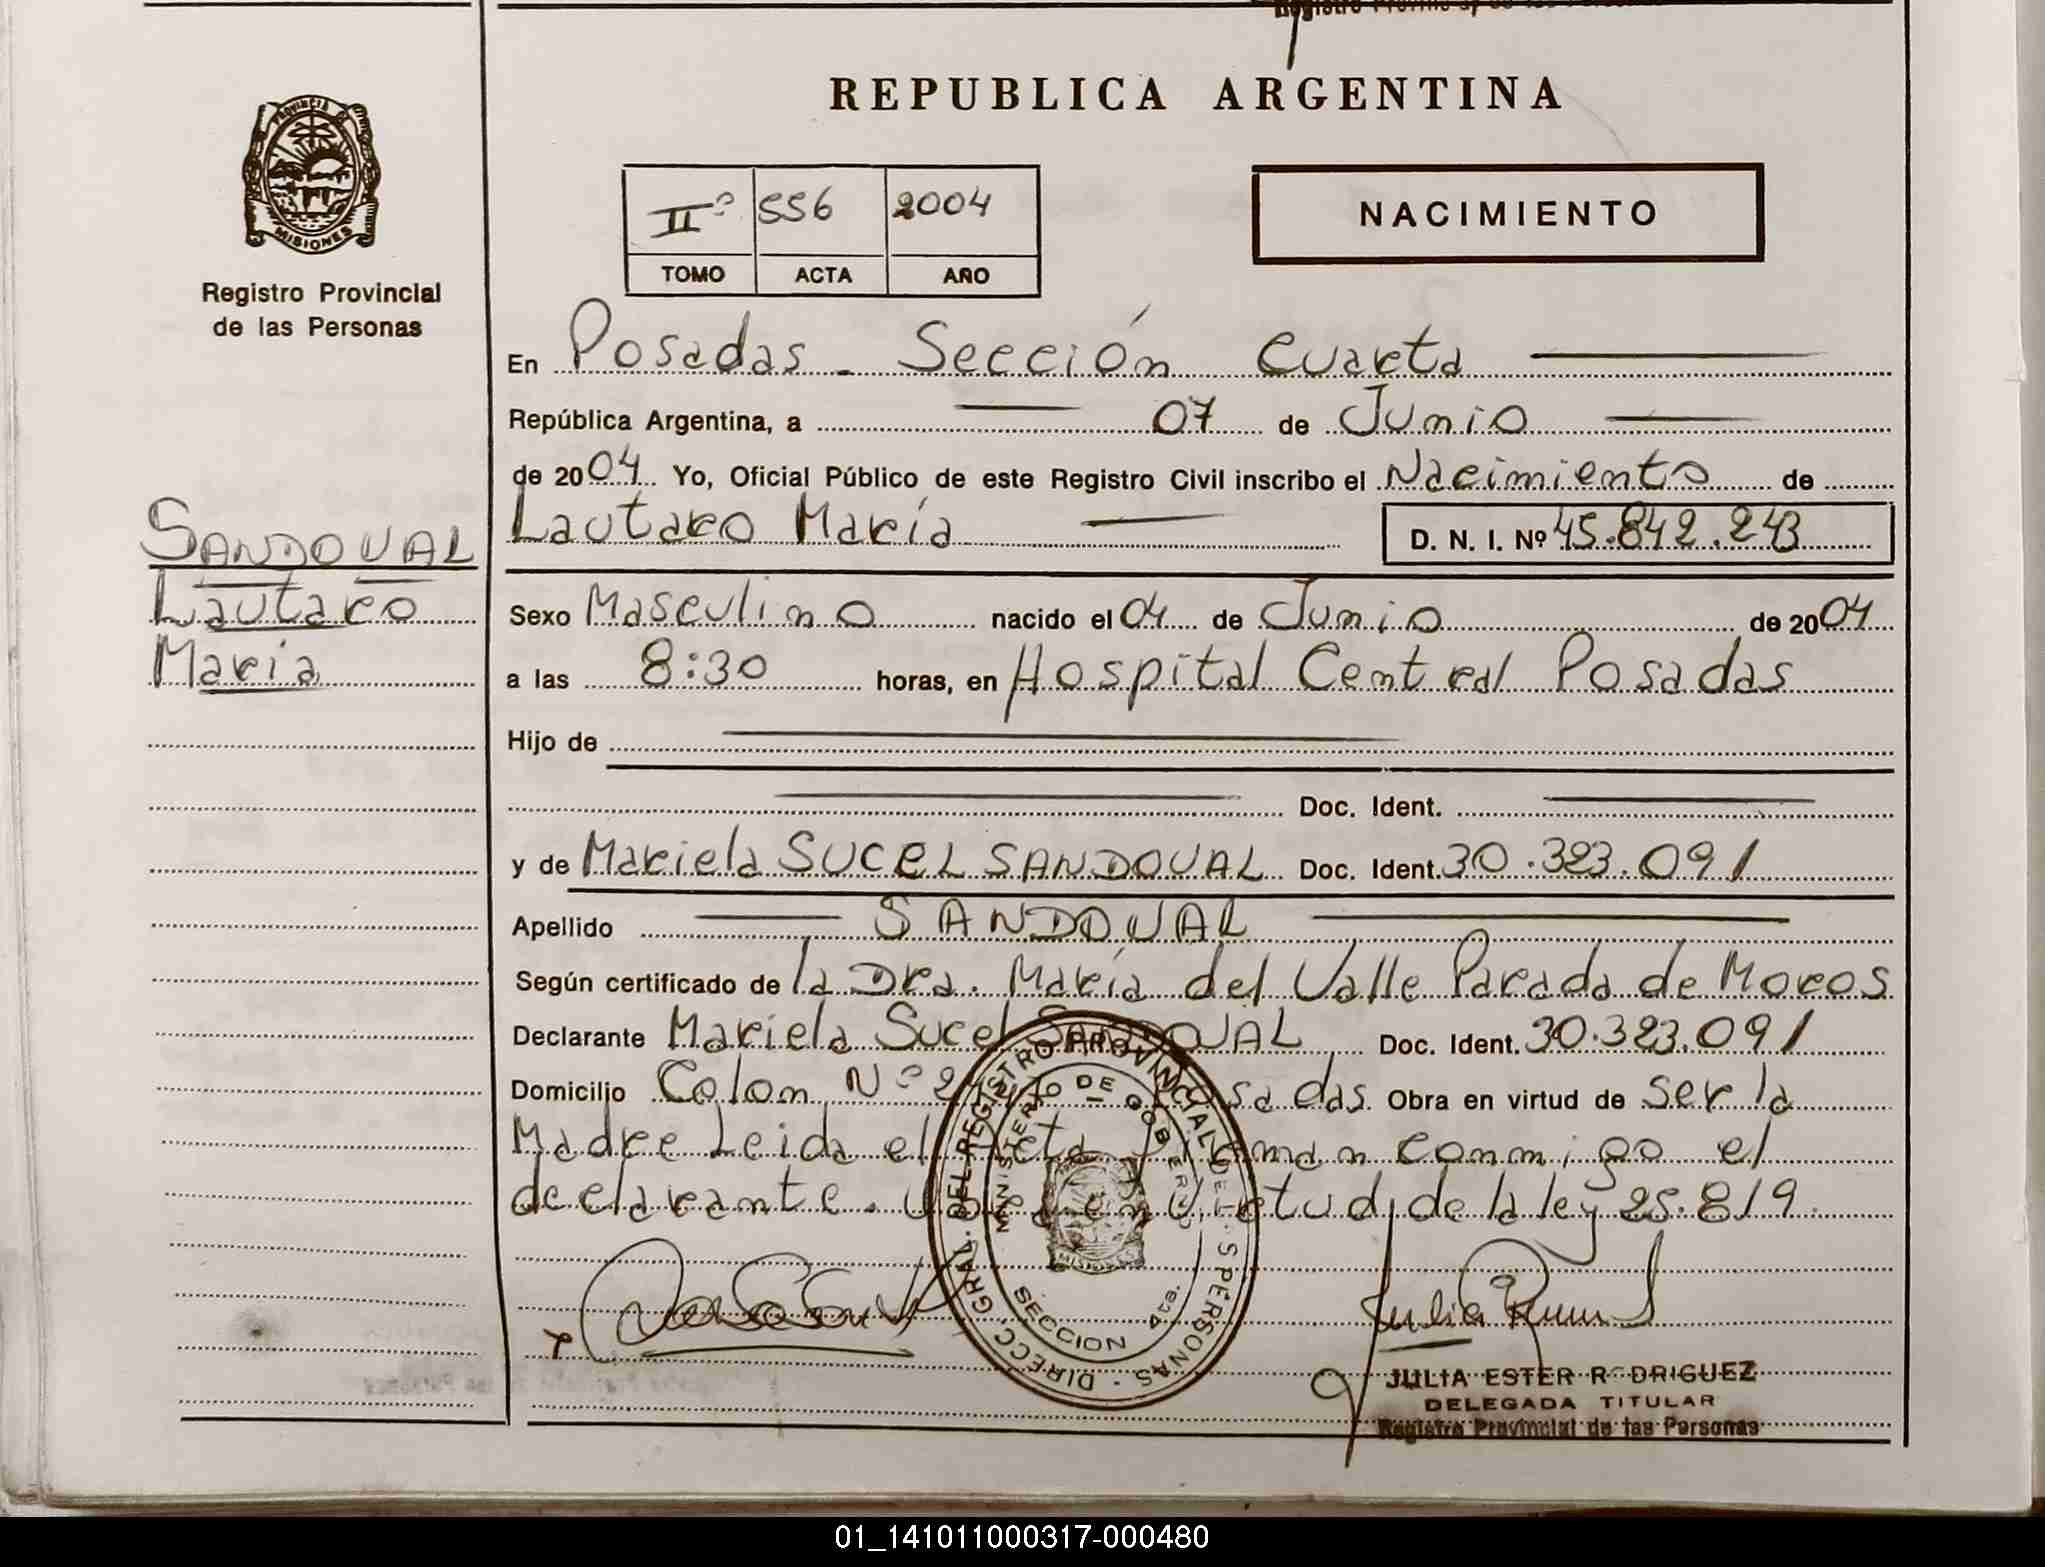 Registro Provincial de las Personas
REPUBLICA ARGENTINA
PROVINCIA DE
MISIONES
Registro Provincial
de las Personas
IIº 556 2004
TOMO ACTA AÑO
NACIMIENTO
En Posadas - Sección Cuarta
República Argentina, a 07 de Junio
de 2004 Yo, Oficial Público de este Registro Civil inscribo el Nacimiento de
Lautaro María D. N. I. Nº 45.842.243
SANDOVAL
Lautaro
María
Sexo Masculino nacido el 04 de Junio de 2004
a las 8:30 horas, en Hospital Central Posadas
Hijo de
Doc. Ident.
y de Mariela SUCEL SANDOVAL Doc. Ident. 30.323.091
Apellido SANDOVAL
Según certificado de la Dra. María del Valle Parada de Moros
Declarante Mariela Sucel SANDOVAL Doc. Ident. 30.323.091
Domicilio Colon Nº Posadas Obra en virtud de ser la
Madre Leida el Acta, firman conmigo el
declarante. en virtud de la ley 25.819.
DIRECC. GRAL. DEL REGISTRO PROVINCIAL DE LAS PERSONAS
MINISTERIO DE GOBIERNO
MISIONES
SECCION 4ta.
JULIA ESTER RODRIGUEZ
DELEGADA TITULAR
Registro Provincial de las Personas
01_141011000317-000480